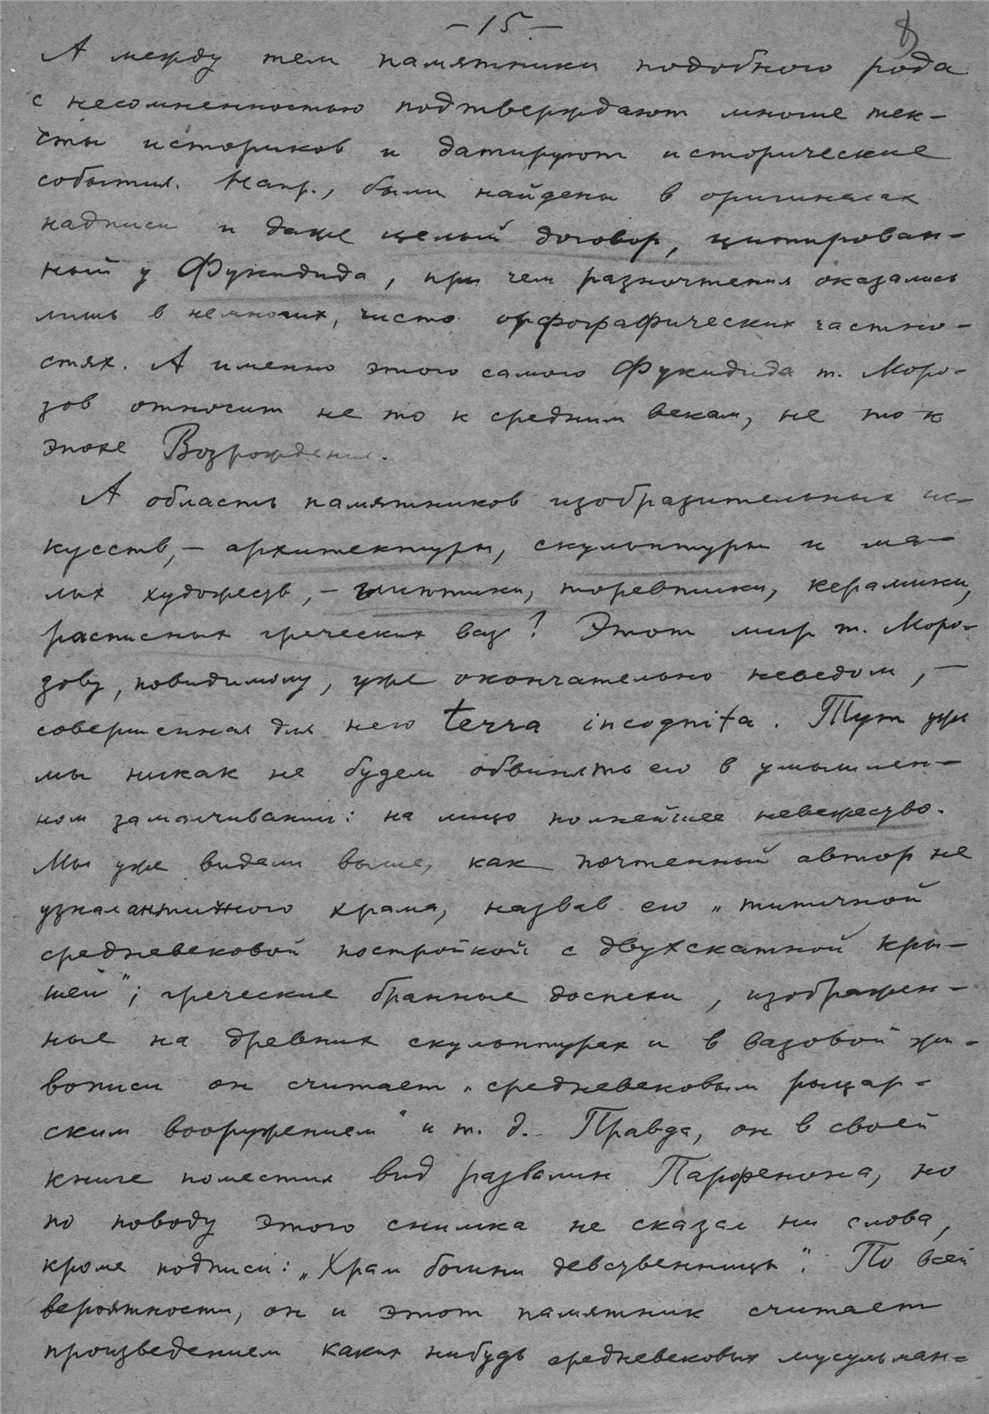 – 15 –
А между тем памятники подобного рода
с несомненностью подтверждают многие тек-
сты историков и датируют исторические
события. Напр., были найдены в оригиналах
надписи и даже целый договор, цитирован-
ный у Фукидида, при чем разночтения оказались
лишь в немногих, чисто орфографических частно-
стях. А именно этого самого Фукидида т. Моро-
зов относит не то к средним векам, не то к
эпохе Возрождения.
А область памятников изобразительных ис-
кусств, – архитектуры, скульптуры и ма-
лых художеств, – глиптики, торевтики, керамики,
расписных греческих ваз? Этот мир т. Моро-
зову, повидимому, уже окончательно неведом, –
совершенная для него terra incognita. Тут уже
мы никак не будем обвинять его в умышлен-
ном замалчивании: на лицо полнейшее невежество.
Мы уже видели выше, как почтенный автор не
узнал античного храма, назвав его „типичной
средневековой постройкой с двухскатной кры-
шей“; греческие бранные доспехи, изображен-
ные на древних скульптурах и в вазовой жи-
вописи он считает „средневековым рыцар-
ским вооружением“ и т. д. Правда, он в своей
книге поместил вид развалин Парфенона, но
по поводу этого снимка не сказал ни слова,
кроме подписи: „Храм богини девственницы“. По всей
вероятности, он и этот памятник считает
произведением каких нибудь средневековых мусульман-